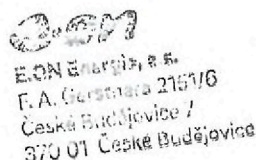 e·on
E.ON Energie, a.s.
F. A. Gerstnera 2151/6
České Budějovice 7
370 01 České Budějovice